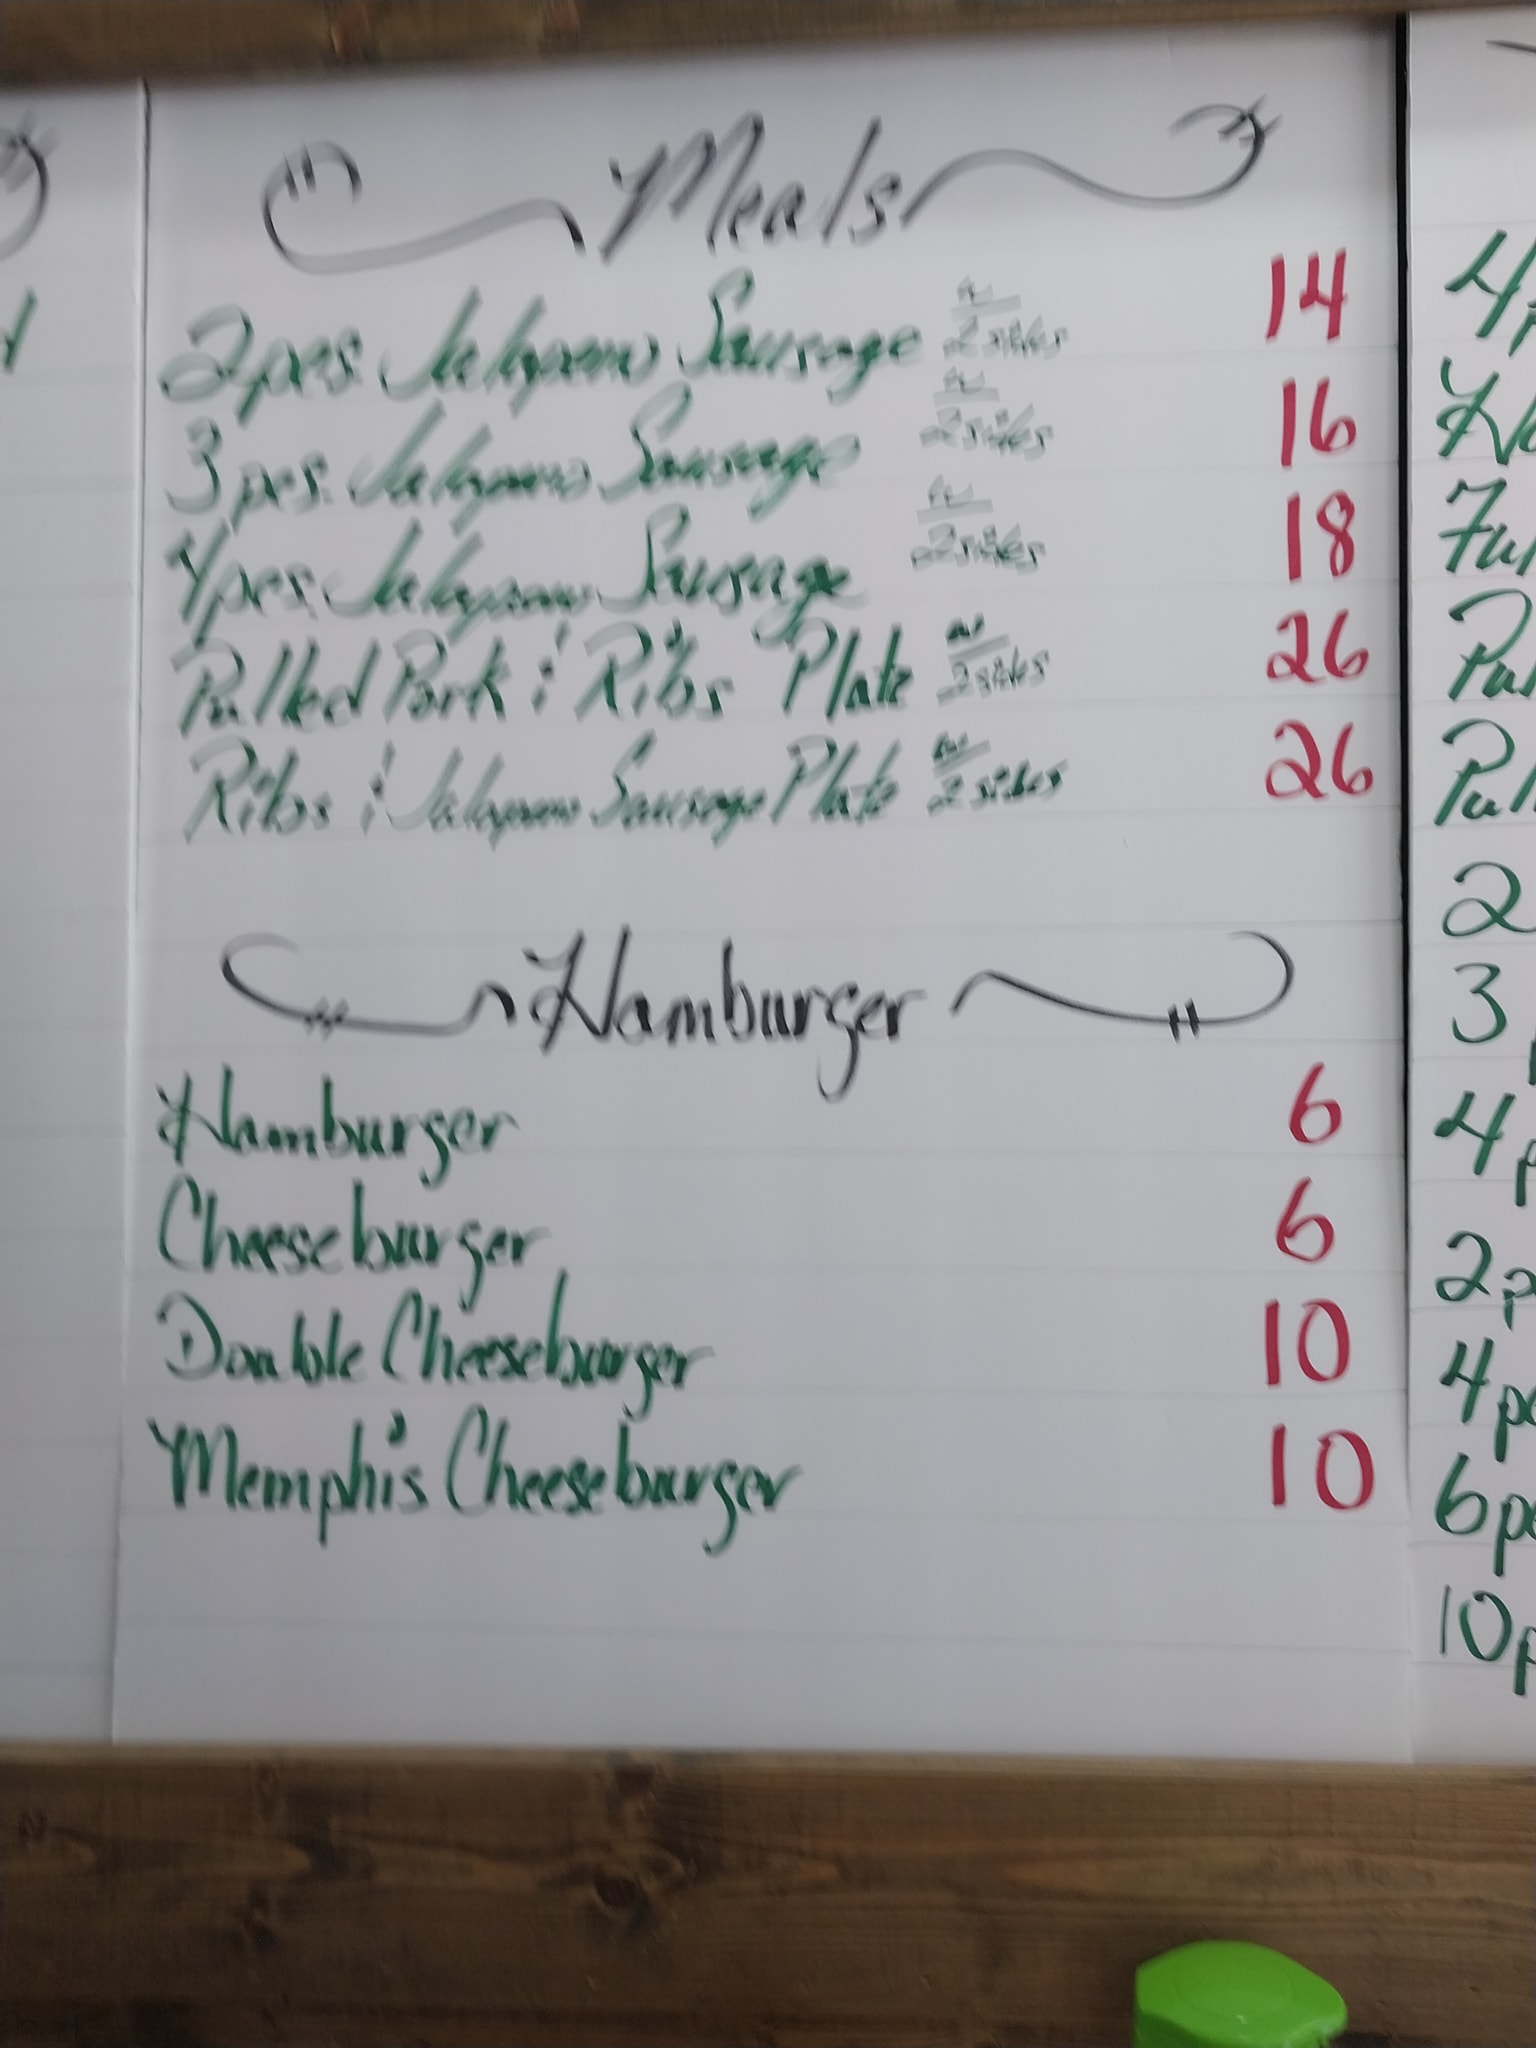 Meals
2 pcs. Jalapeno Sausage w/ 2 sides 14
3 pcs. Jalapeno Sausage w/ 2 sides 16
4 pcs. Jalapeno Sausage w/ 2 sides 18
Pulled Pork & Ribs Plate w/ 2 sides 26
Ribs & Jalapeno Sausage Plate w/ 2 sides 26
Hamburger
Hamburger 6
Cheeseburger 6
Double Cheeseburger 10
Memphis Cheeseburger 10
4p
Ful
Pul
Pull
2
3 p
4 p
2p
4pc
6pc
10p